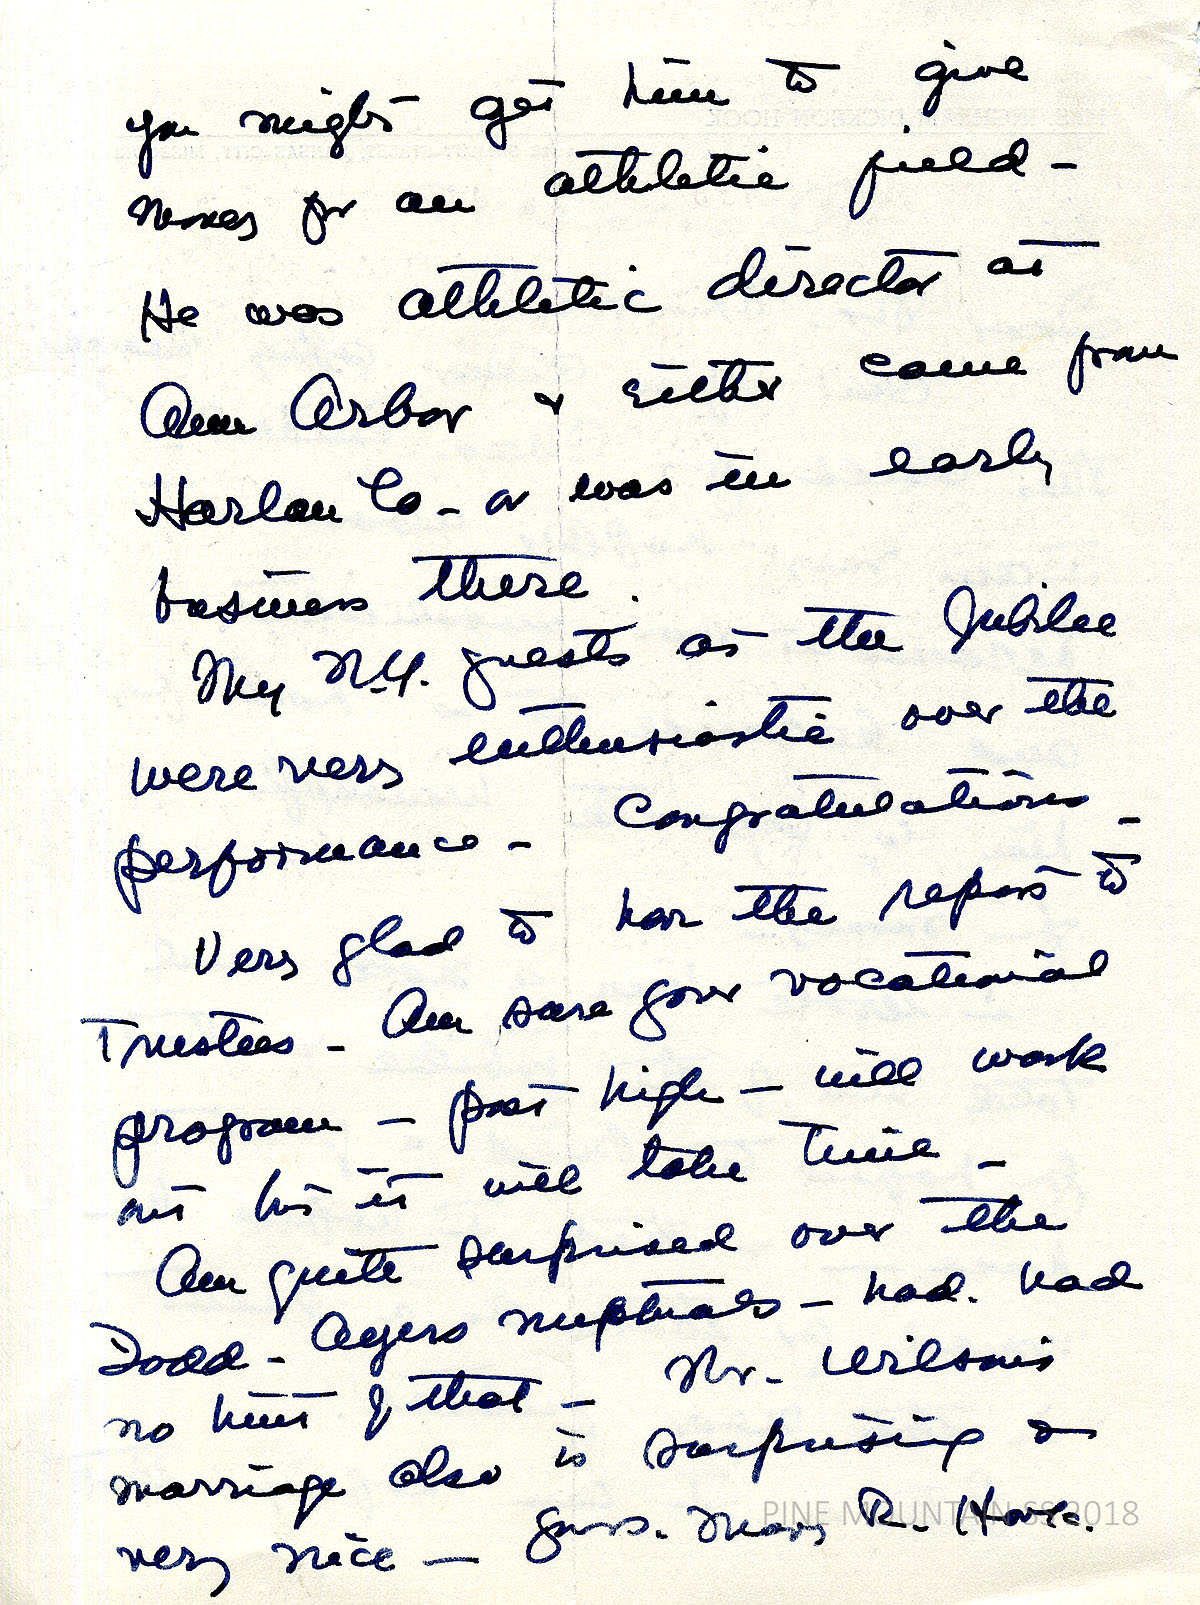 you might get him to give
money for an athletic field -
He was athletic director at
Ann Arbor & either came from
Harlan Co - or was in early
business there.
My N.Y. guests at the Jubilee
were very enthusiastic over the
performance - Congratulations -
Very glad to have the report to
Trustees - Am sure your vocational
program - post high - will work
out but it will take time -
Am quite surprised over the
Dodd - Ayers nuptials - had. had
no hint of that - Mr. Wilson's
marriage also is surprising &
very nice - Yours. Mary R.
PINE MOUNTAIN SS 2018